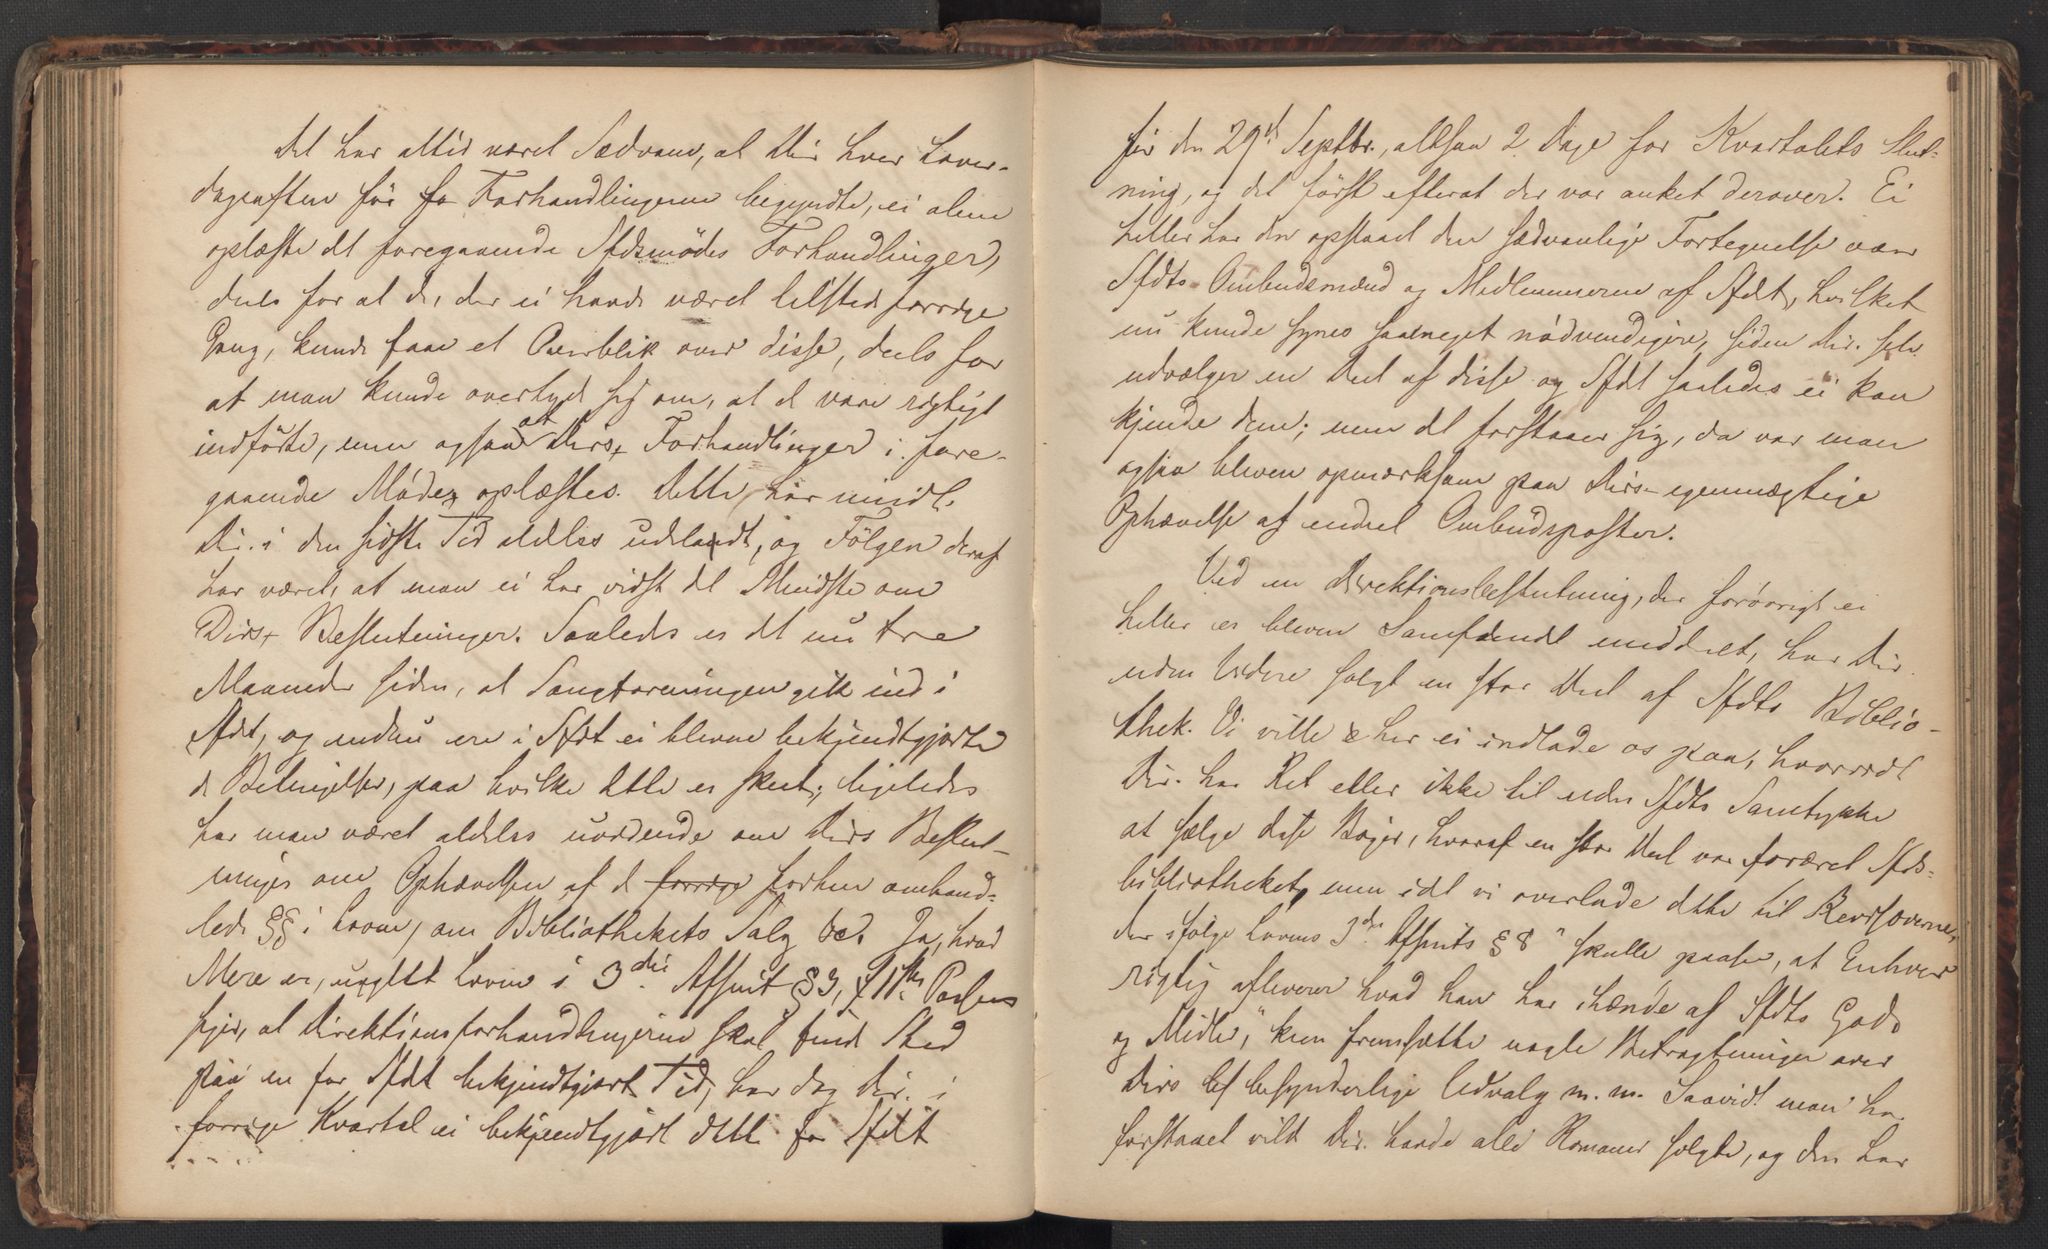 Det har altid været Sædvane, at Dir. hver Løver-
dagaften før fo Forhandlingerne begyndte, ei alene
oplæste det foregaaende Sfdsmødes Forhandlinger,
deels for at de, der ei havde været tilstede forrige
Gang, kunde faae et Overblik over disse, deels for
at man kunde overtyde sig om, at de vare rigtigt
indførte, men ogsaa at Dirs. Forhandlinger i fore-
gaaende Møde oplæstes. Dette har imidl.
Dir. i den sidste Tid aldeles udeladt, og Følgen deraf
har været, at man ei har vidst det Mindste om
Dirs. Beslutninger. Saaledes er det nu tre
Maaneder siden, at Sangforeningen gik ind i
Sfdt, og endnu ere i Sfdt ei blevne bekjendtgjorte
de Betingelser, paa hvilke dette er skeet; ligeledes
har man været aldeles uvidende om Dirs Beslut-
ninger om Ophævelsen af de forrige forhen omhand-
lede §§ i Loven, om Bibliothekets Salg &c. Ja, hvad
Mere er, uagtet Loven i 3die Afsnit § 3, 11te Passus
siger, at Direktionsforhandlingerne skal finde Sted
paa en for Sfdt bekjendtgjort Tid, har dog Dir. i
forrige Kvartal ei bekjendtgjort dette for Sfdt
før den 29d Septbr., altsaa 2 Dage før Kvartalets Slut-
ning, og det først efterat der var anket derover. Ei
heller har der opstaaet den sædvanlige Fortegnelse over
Sfdts Ombudsmænd og Medlemmerne af Sfdt, hvilket
nu kunde synes saameget nødvendigere, siden Dir. selv
udvælger en Deel af disse og Sfdt saaledes ei kan
kjende dem; men det forstaaer sig, da var man
ogsaa bleven opmærksom paa Dirs egenmægtige
Ophævelse af endeel Ombudsposter.
Ved en Direktionsbeslutning, der forøvrigt ei
heller er bleven Samfundet meddeelt, har Dir.
uden Videre solgt en stor Deel af Sfdts Biblio-
thek. Vi ville her ei indlade os paa, hvorvidt
Dir. har Ret eller ikke til uden Sfdts Samtykke
at sælge disse Bøger, hvoraf en stor Deel var foræret Sfds-
bibliotheket, men idet vi overlade dette til Revisorerne,
der ifølge Lovens 3die Afsnits § 8 "skulle paasee, at Enhver
rigtig afleverer hvad han har ihænde af Sfdts Gods
og Midler," kun fremsætte nogle Betragtninger over
Dirs bes besynderlige Udvalg m. m. Saavidt man har
forstaaet vilde Dir. havde alle Romaner solgte, og den har